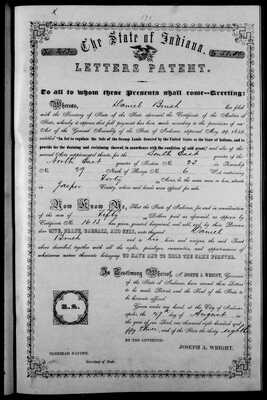 The State of Indiana.
LETTERS PATENT.
To all to whom these Presents shall come—Greeting:
Whereas, Daniel Brush has filed
with the Secretary of State of the State aforesaid, the Certificate of the Auditor of
State, whereby it appears that full payment has been made according to the provisions of an
Act of the General Assembly of the State of Indiana, approved May 29, 1852,
entitled "An Act to regulate the Sale of the Swamp Lands donated by the United States to the State of Indiana, and to
provide for the draining and reclaiming thereof, in accordance with the condition of said grant,"
South East quarter of the
North East quarter of Section No. 32 in Township
No. 29 North of Range No. 6 West containing
Forty acres
in Jasper County,
Now Know Ye, That the State of Indiana, for and in consideration
of the sum of Fifty Dollars paid as aforesaid, as appears by
Certificate No.
GIVE, GRANT, BARGAIN, AND SELL, unto the said Daniel
Brush and to his heirs and assigns
above described together with all the rights, privileges, immunities, and appurtenances of
whatsoever nature thereunto belonging TO HAVE AND TO HOLD THE SAME FOREVER.
In Testimony Whereof, I, JOSEPH A. WRIGHT, Governor
of the State of Indiana, have caused these Letters
to be made Patent and the Seal of the State to
be hereunto affixed.
Given under my hand, at the City of Indianapolis,
the 27 day of August in
the year of our Lord, one thousand eight hundred and
fifty three, and of the State the thirty eighth
BY THE GOVERNOR:
JOSEPH A. WRIGHT.
Secretary of State.